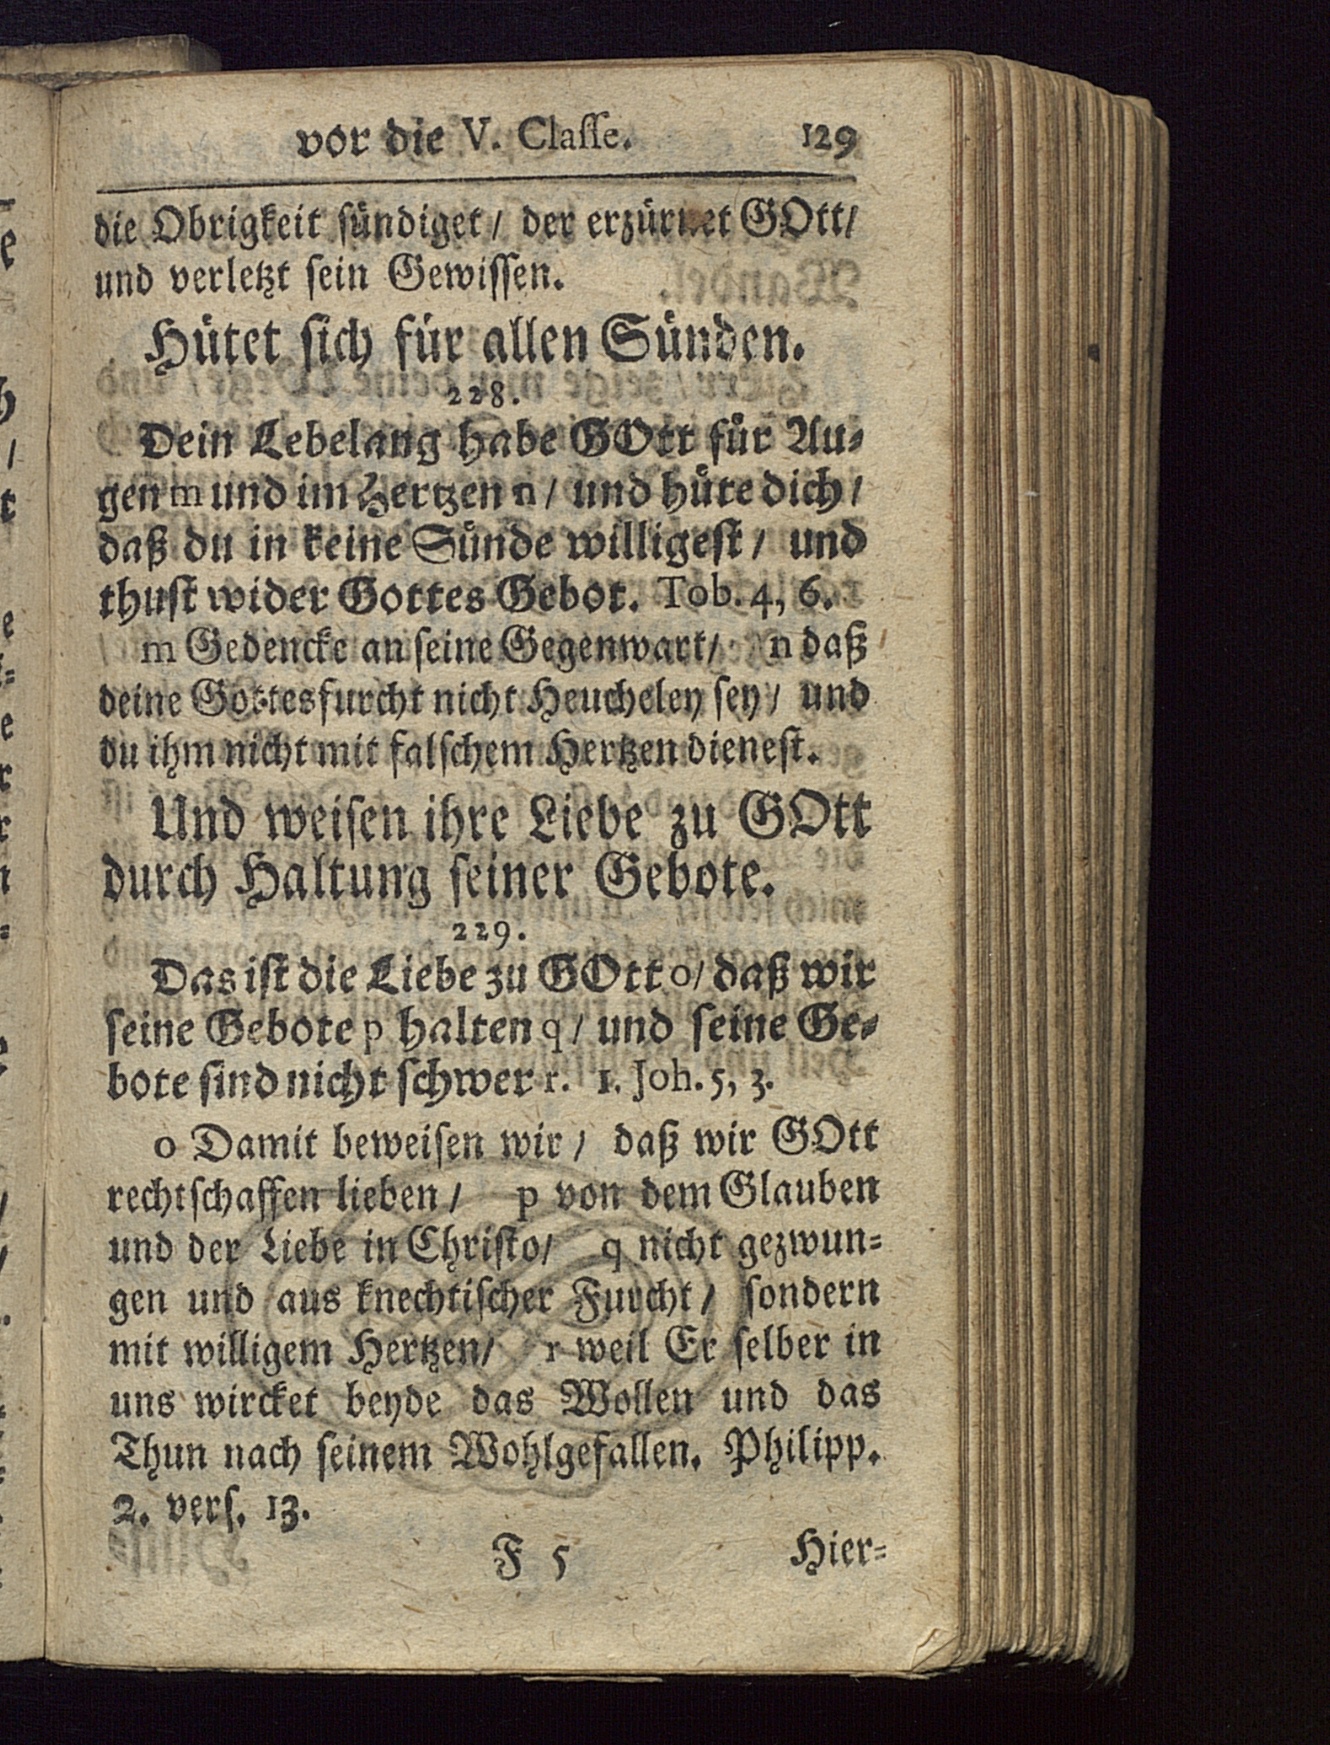 vor die V. Classe. 129
die Obrigkeit sündiget / der erzürnet GOtt /
und verletzt sein Gewissen.
Hütet sich für allen Sünden.
228.
Dein Lebelang habe GOtt für Au-
gen m und im Hertzen n / und hüte dich /
daß du in keine Sünde willigest / und
thust wider Gottes Gebot. Tob. 4, 6.
m Gedencke an seine Gegenwart / n daß
deine Gottesfurcht nicht Heucheley sey / und
du ihm nicht mit falschem Hertzen dienest.
Und weisen ihre Liebe zu GOtt
durch Haltung seiner Gebote.
229.
Das ist die Liebe zu GOtt o / daß wir
seine Gebote p halten q / und seine Ge-
bote sind nicht schwer r. 1. Joh. 5, 3.
o Damit beweisen wir / daß wir GOtt
rechtschaffen lieben / p von dem Glauben
und der Liebe in Christo / q nicht gezwun-
gen und aus knechtischer Furcht / sondern
mit willigem Hertzen / r weil Er selber in
uns wircket beyde das Wollen und das
Thun nach seinem Wohlgefallen. Philipp.
2. vers. 13.
F 5 Hier-